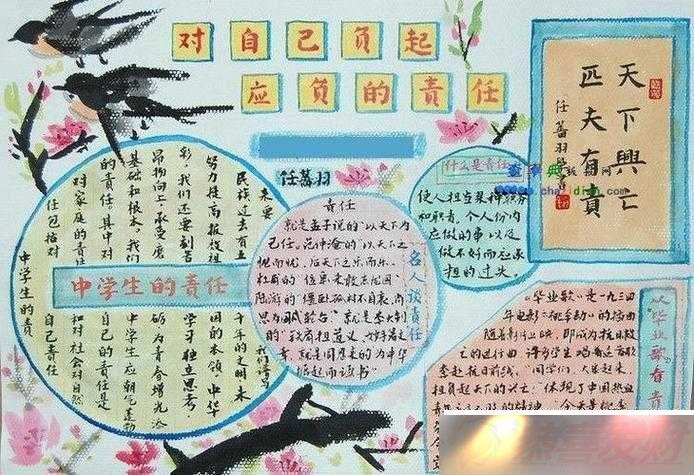 对自己负起
应负的责任
天下興亡
匹夫有責
任蕃羽
什么是责任
使人担当某种职务
和职责,个人份内
应做的事以及
做不好而应承
担的过失。
责任
就是孟子说的“以天下为
己任,范仲淹的“以天下之
忧而忧,后天下之乐而乐,
杜甫的“位卑未敢忘忧国”
陆游的“僵卧孤村不自哀,尚
思为国戍轮台”就是李大钊
的“铁肩担道义,妙手著文
章,就是周恩来的为中华
崛起而读书”
名人谈责任
中学生的责任
中学生的责
任包括对
自己责任
对家庭的责任
和对社会对自然
的责任,其中对
自己的责任是
基础和根本,我们
中学生应朝气蓬勃
昂扬向上,承受磨
砺为青春增光添
彩,我们还要刻苦
学习独立思考,
努力提高报效祖
国的本领,中华
民族过去有五
千年的文明,未
来要
我们谱写
《毕业歌》是一九三四
年电影《桃李劫》的插曲
随着影片上映,即成为抗日救
亡的进行曲
李赴抗日前线,“同学们,大家起来,
担负起天下的兴亡”体现了中国热血
从“毕业歌看责